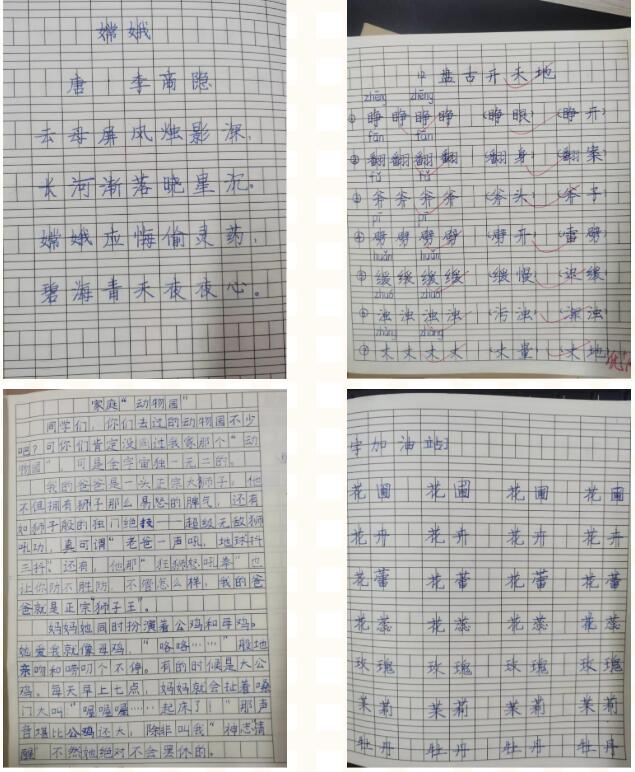 嫦娥
唐 李商隐
云母屏风烛影深,
长河渐落晓星沉。
嫦娥应悔偷灵药,
碧海青天夜夜心。
12 盘古开天地
zhēng zhēng
① 睁 睁 睁 睁 (睁眼) (睁开)
fān fān
② 翻 翻 翻 翻 (翻身) (翻案)
fǔ fǔ
③ 斧 斧 斧 斧 (斧头) (斧子)
pī pī
④ 劈 劈 劈 劈 (劈开) (雷劈)
huǎn huǎn
⑤ 缓 缓 缓 缓 (缓慢) (迟缓)
zhuó zhuó
⑥ 浊 浊 浊 浊 (污浊) (浑浊)
zhàng zhàng
⑦ 丈 丈 丈 丈 (丈量) (丈地)
家庭“动物园”
同学们,你们去过的动物园不少
吧?可你们肯定没去过我家那个“动
物园”,可是全宇宙独一无二的。
我的爸爸是一头正宗大狮子,他
不但拥有狮子那么易怒的脾气,还有
如狮子般的独门绝技——超级无敌狮
吼功,真可谓“老爸一声吼,地球抖
三抖”。还有,他那“狂狮怒吼拳”也
让你防不胜防,不管怎么样,我的爸
爸就是正宗“狮子王”。
妈妈她同时扮演着公鸡和母鸡。
她爱我就像母鸡,“咯咯……”般地
亲吻和唠叨个不停。有的时候是大公
鸡。每天早上七点,妈妈就会扯着嗓
门大叫“喔喔喔……起床了!”那声
音堪比公鸡还大,除非叫我“神志清
醒”不然她绝对不会罢休的。
字加油站
花圃 花圃 花圃 花圃
花卉 花卉 花卉 花卉
花蕾 花蕾 花蕾 花蕾
花蕊 花蕊 花蕊 花蕊
玫瑰 玫瑰 玫瑰 玫瑰
茉莉 茉莉 茉莉 茉莉
牡丹 牡丹 牡丹 牡丹